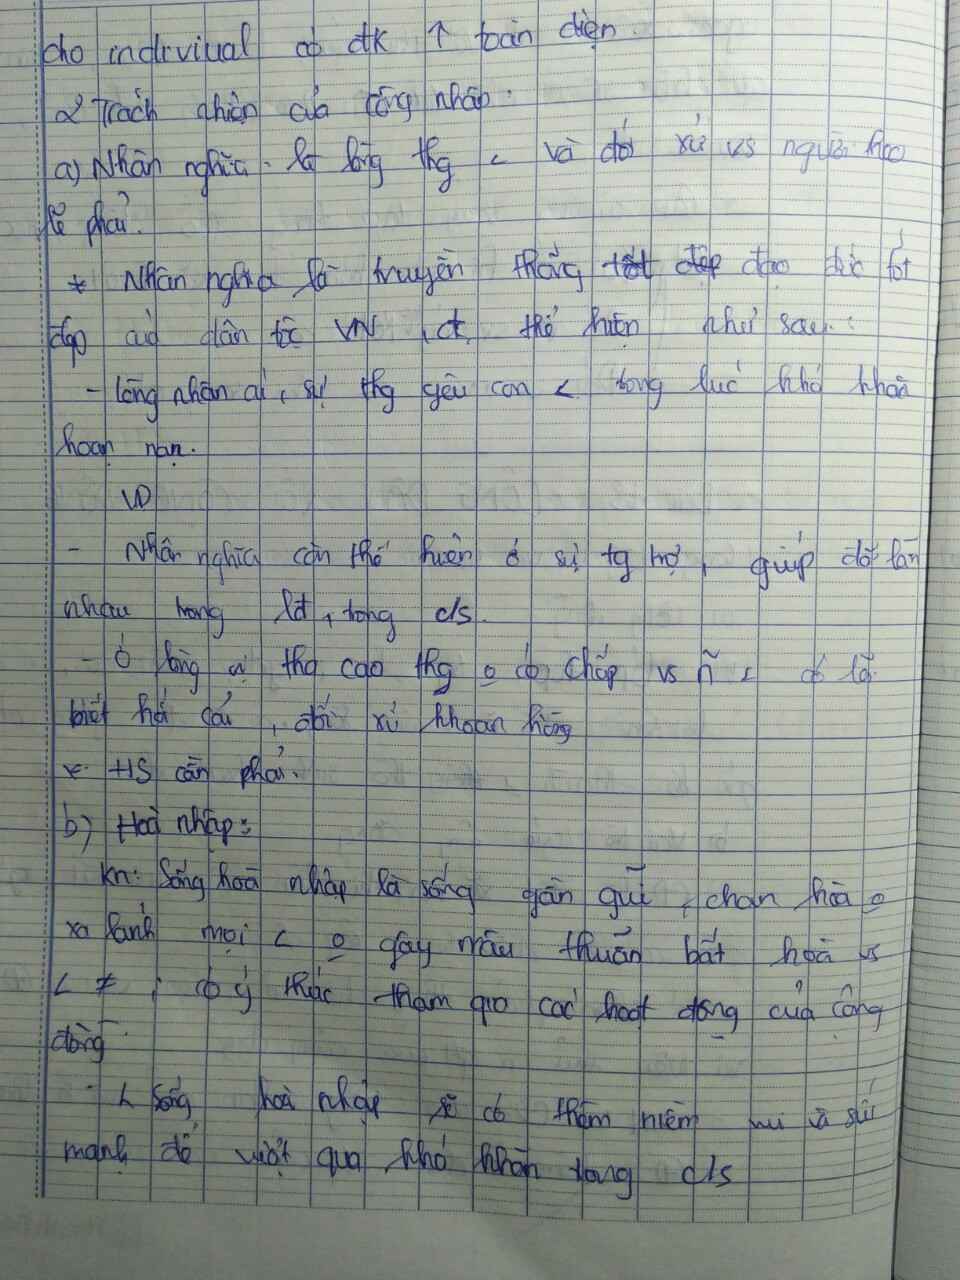 cho indiviual có đk ↑ toàn diện.
2 Trách nhiệm của công nhập.
a) Nhân nghĩa - là lòng thg < và đối xử vs người theo
lẽ phải.
* Nhân nghĩa là truyền thống đạo đức tốt
đẹp của dân tộc VN, đc thể hiện như sau:
- lòng nhân ái, sự thg yêu con < tong lúc khó khăn
hoạn nạn.
VD
- Nhân nghĩa còn thể hiện ở sự tg trợ, giúp đỡ lẫn
nhau trong lđ, tong c/s.
- Ở lòng vị tha cao thg o cố chấp vs ~ < có lỗi
biết hối cải, đối xử khoan hồng
* HS cần phải.
b) Hoà nhập:
Kn: Sống hoà nhập là sống gần gũi, chan hoà o
xa lánh mọi < o gây mâu thuẫn bất hoà vs
< ≠, có ý thức tham gia các hoạt động của cộng
đồng
- < sống hoà nhập sẽ có thêm niềm vui và sức
mạnh để vượt qua khó khăn tong c/s